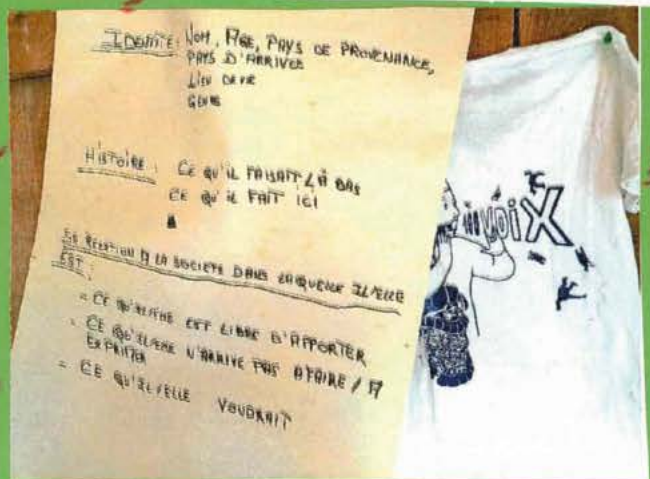 IDENTITÉ : NOM, AGE, PAYS DE PROVENANCE,
PAYS D'ARRIVEE
LIEU DE VIE
GENRE
HISTOIRE : CE QU'IL FAISAIT LÀ BAS
CE QU'IL FAIT ICI
RELATION A LA SOCIETE DANS LAQUELLE IL/ELLE
EST :
- CE QU'IL/ELLE EST LIBRE D'APPORTER
- CE QU'IL/ELLE N'ARRIVE PAS A FAIRE / A
EXPRIMER
- CE QU'IL/ELLE VOUDRAIT
VOIX